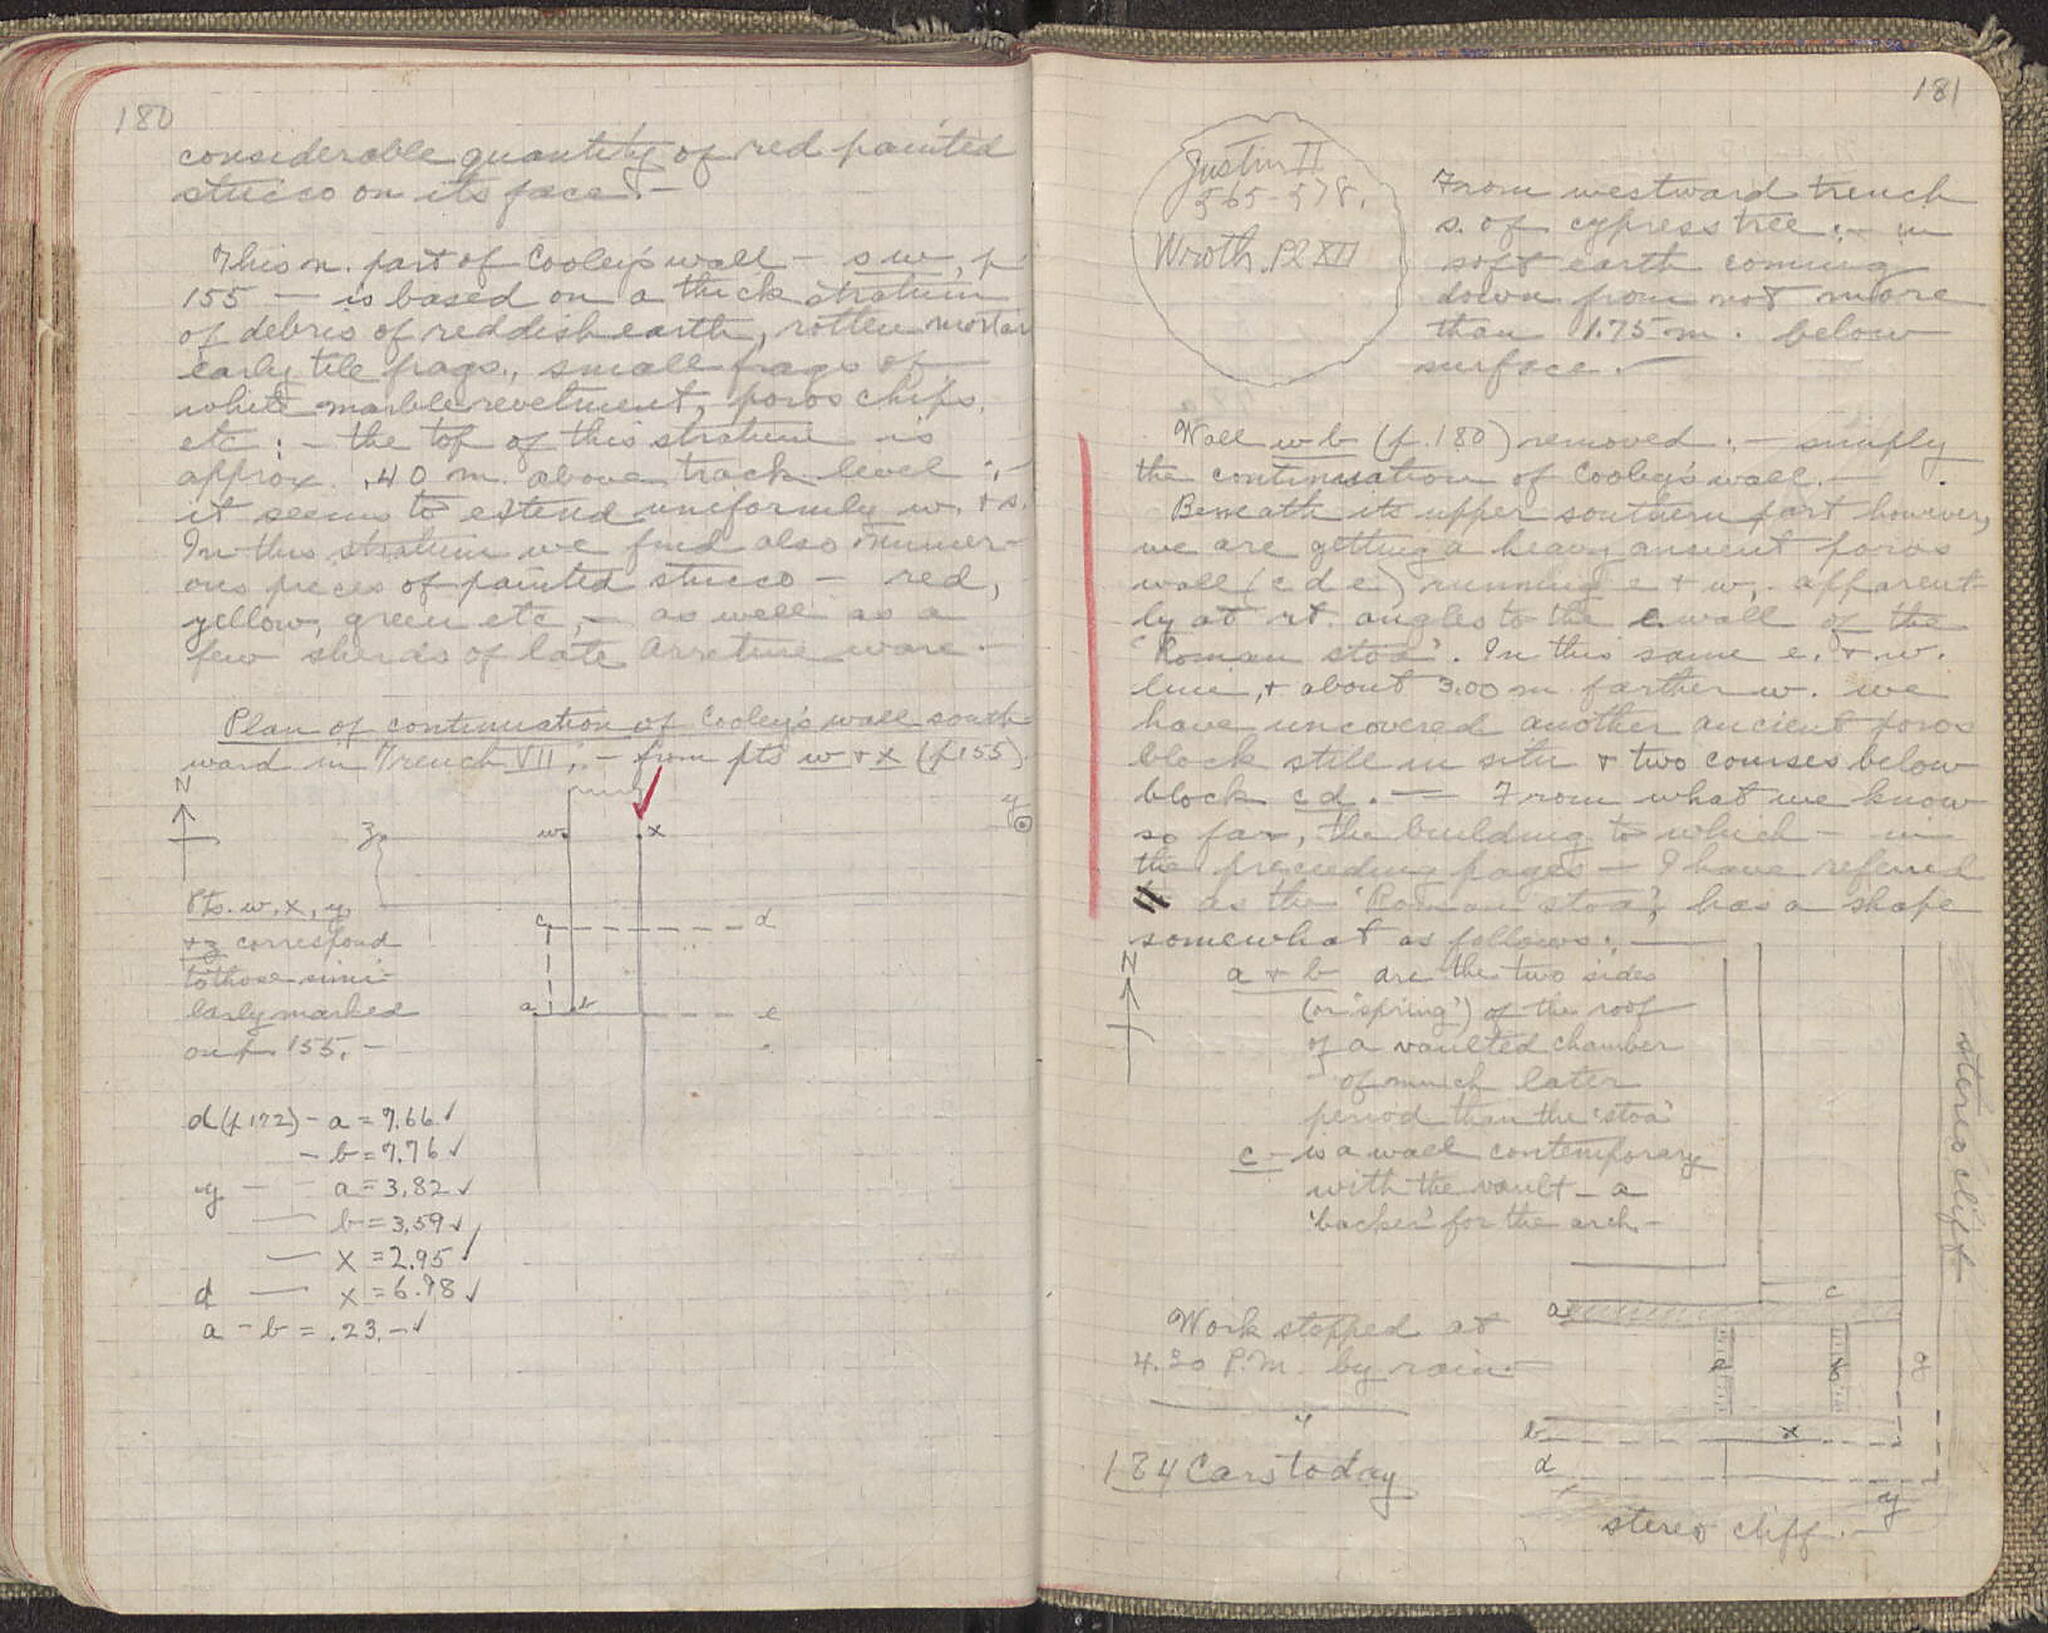 180
considerable quantity of red painted
stucco on its face.-
This n. part of Cooley's wall - sw, p
155 - is based on a thick stratum
of debris of reddish earth, rotten mortar
early tile frags., small frags of
white marble revetment, poros chips,
etc: - the top of this stratum is
approx. .40 m. above track level:-
it seems to extend uniformly w. + s.
In this stratum we find also numer-
ous pieces of painted stucco - red,
yellow, green etc, - as well as a
few sherds of late Arretine ware.-
Plan of continuation of Cooley's wall south-
ward in Trench VII; - from pts w + x (p155).
N
z
w
x
y
Pts. w, x, y,
+ z correspond
to those simi-
larly marked
on p. 155.-
c
d
a
b
e
d (p172) - a = 7.66 ✓
- b = 7.76 ✓
y - a = 3.82 ✓
— b = 3.59 ✓
— x = 2.95 ✓
d — x = 6.98 ✓
a - b = .23.- ✓
181
Justin II
565-578.
Wroth. Pl XII
From westward trench
s. of cypress tree:- in
soft earth coming
down from not more
than 1.75 m. below
surface.-
Wall wb (p.180) removed:- simply
the continuation of Cooley's wall.-
Beneath its upper southern part however,
we are getting a heavy ancient poros
wall (c d e) running e + w, apparent-
ly at rt. angles to the e. wall of the
'Roman stoa'. In this same e. + w.
line, + about 3.00 m farther w. we
have uncovered another ancient poros
block still in situ + two courses below
block cd. — From what we know
so far, the building to which - in
the preceeding pages - I have referred
as the 'Roman stoa', has a shape
somewhat as follows:-
N
a + b are the two sides
(or 'spring') of the roof
of a vaulted chamber
of much later
period than the 'stoa'
c - is a wall contemporary
with the vault - a
'backer' for the arch.-
stereo clift
c
a
Work stopped at
4.30 P.M. by rain.-
b
x
d
y
184 Cars today
stereo cliff.-